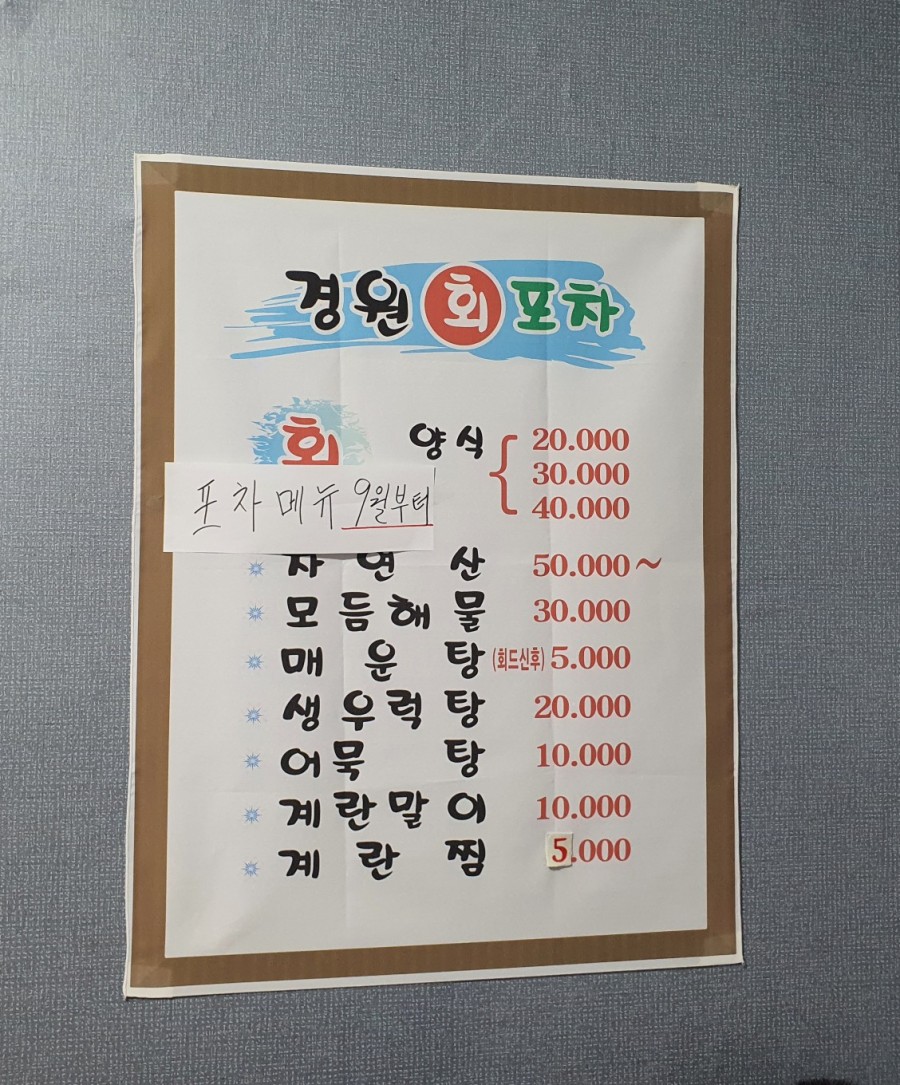 경원 회 포차
회 양식 20.000
30.000
40.000
포차메뉴 9월부터
자연산 50.000~
모듬해물 30.000
매운탕 (회드신후) 5.000
생우럭탕 20.000
어묵탕 10.000
계란말이 10.000
계란찜 5.000